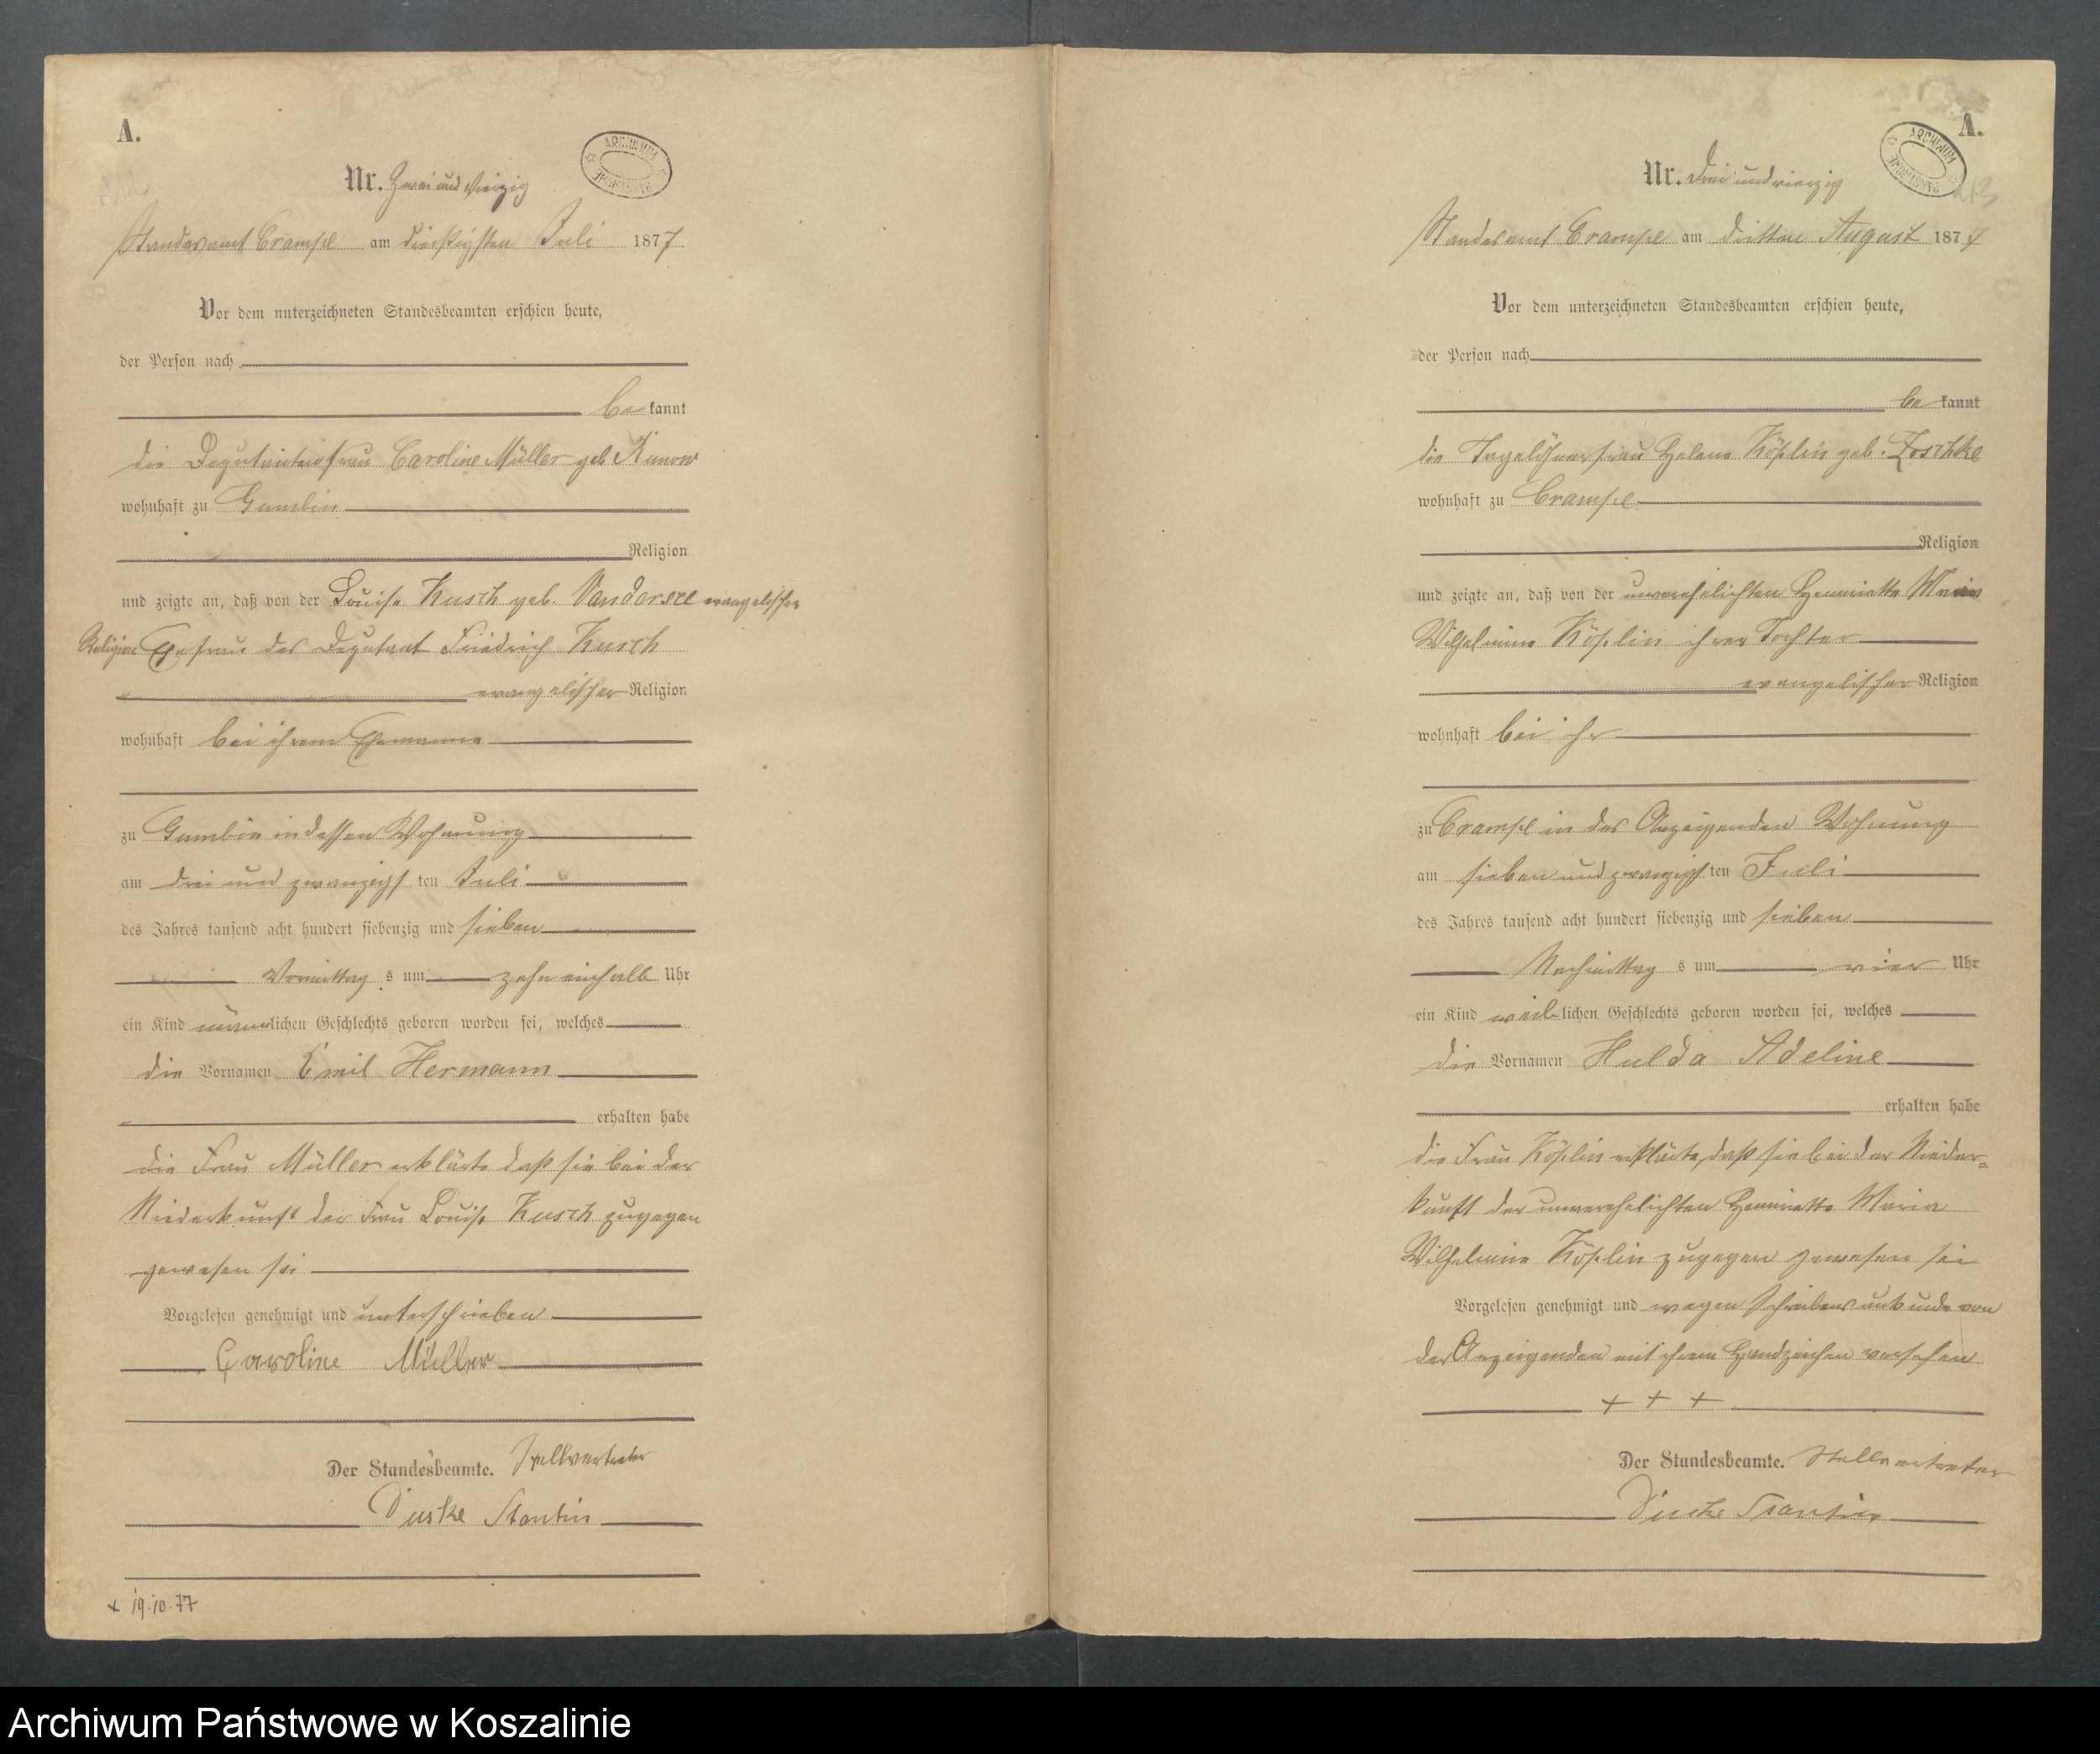 A.
Nr. Zwei und vierzig
ARCHIWUM PAŃSTWOWE
Standesamt Crampe am dreißigsten Juli 1877.
Vor dem unterzeichneten Standesbeamten erschien heute,
der Person nach
be kannt
die Deputantenfrau Caroline Müller geb. Kunow
wohnhaft zu Gumbin
Religion
und zeigte an, daß von der Louise Kusch geb. Vandersee evangelischer
Religion Ehefrau des Deputant Friedrich Kusch
evangelischer Religion
wohnhaft bei ihrem Ehemanne
zu Gumbin in dessen Wohnung
am drei und zwanzigs ten Juli
des Jahres tausend acht hundert siebenzig und sieben
Vormittag s um zehn einhalb Uhr
ein Kind männlichen Geschlechts geboren worden sei, welches
die Vornamen Emil Hermann
erhalten habe
die Frau Müller erklärte daß sie bei der
Niederkunft der Frau Louise Kusch zugegen
gewesen sei
Vorgelesen genehmigt und unterschrieben
Caroline Müller
Der Standesbeamte. Stellvertreter
+ 19.10.77
A.
Nr. Drei und vierzig
ARCHIWUM PAŃSTWOWE
Standesamt Crampe am dritten August 1877
Vor dem unterzeichneten Standesbeamten erschien heute,
der Person nach
be kannt
die Tagelöhnerfrau Helene Köplin geb. Zoschke
wohnhaft zu Crampe
Religion
und zeigte an, daß von der unverehelichten Henriette Maria
Wilhelmine Köplin ihrer Tochter
evangelischer Religion
wohnhaft bei ihr
zu Crampe in der Anzeigenden Wohnung
am sieben und zwanzigs ten Juli
des Jahres tausend acht hundert siebenzig und sieben
Nachmittag s um vier Uhr
ein Kind weiblichen Geschlechts geboren worden sei, welches
die Vornamen Hulda Adeline
erhalten habe
die Frau Köplin erklärte, daß sie bei der Nieder-
kunft der unverehelichten Henriette Maria
Wilhelmine Köplin zugegen gewesen sei
Vorgelesen genehmigt und wegen Schreibensunkunde von
der Anzeigenden mit ihrem Handzeichen versehen
+ + +
Der Standesbeamte. Stellvertreter
Archiwum Państwowe w Koszalinie